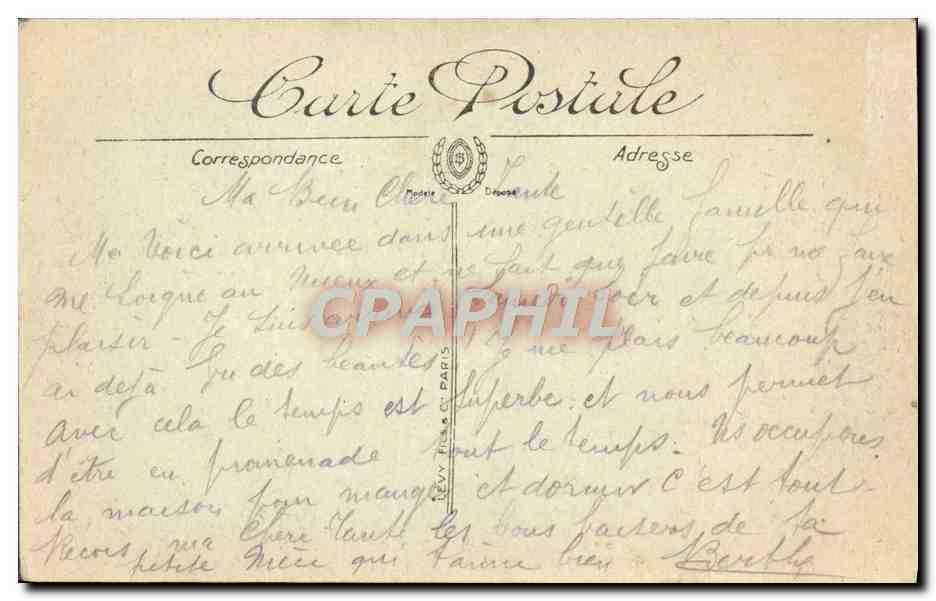 Carte Postale
Correspondance
Adresse
Modèle Déposé
Ma Bien Chère Tante
Me Voici arrivée dans une gentille famille qui
me soigne au mieux et ne sait que faire pr me faire
plaisir - Je suis hier et depuis j'en
ai déjà vu des beautés Je me plais beaucoup
avec cela le temps est superbe et nous permet
d'être en promenade tout le temps. Ns occupons
la maison pour manger et dormir C'est tout
Reçois ma Chère Tante les bons baisers de ta
petite Nièce qui t'aime bien Berthe
LEVY FILS & Cie PARIS
CPAPHIL